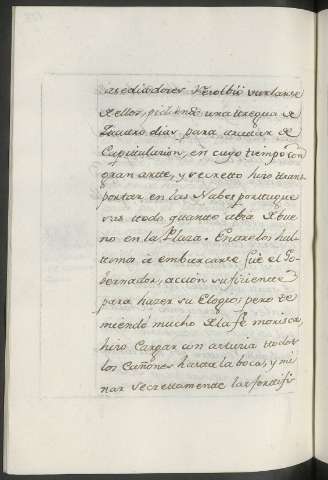 asediadores Resolbió burlarse
de ellos, pidiendo una tregua de
quatro dias para tratar de
Capitulacion, en cuyo tiempo con
gran arte, y secretto hizo trans
portar en las Nabes portugue
sas todo quanto abia de bue
no en la Plaza. Entre los hul
timos à embarcarse fué el Go-
bernador, accion suficiente
para hazer su Elogio; pero te
miendo mucho de la fe morisca,
hizo Cargar con arturia todos
los Cañones hasta la boca, y mi
nar secrettamente las fortifi